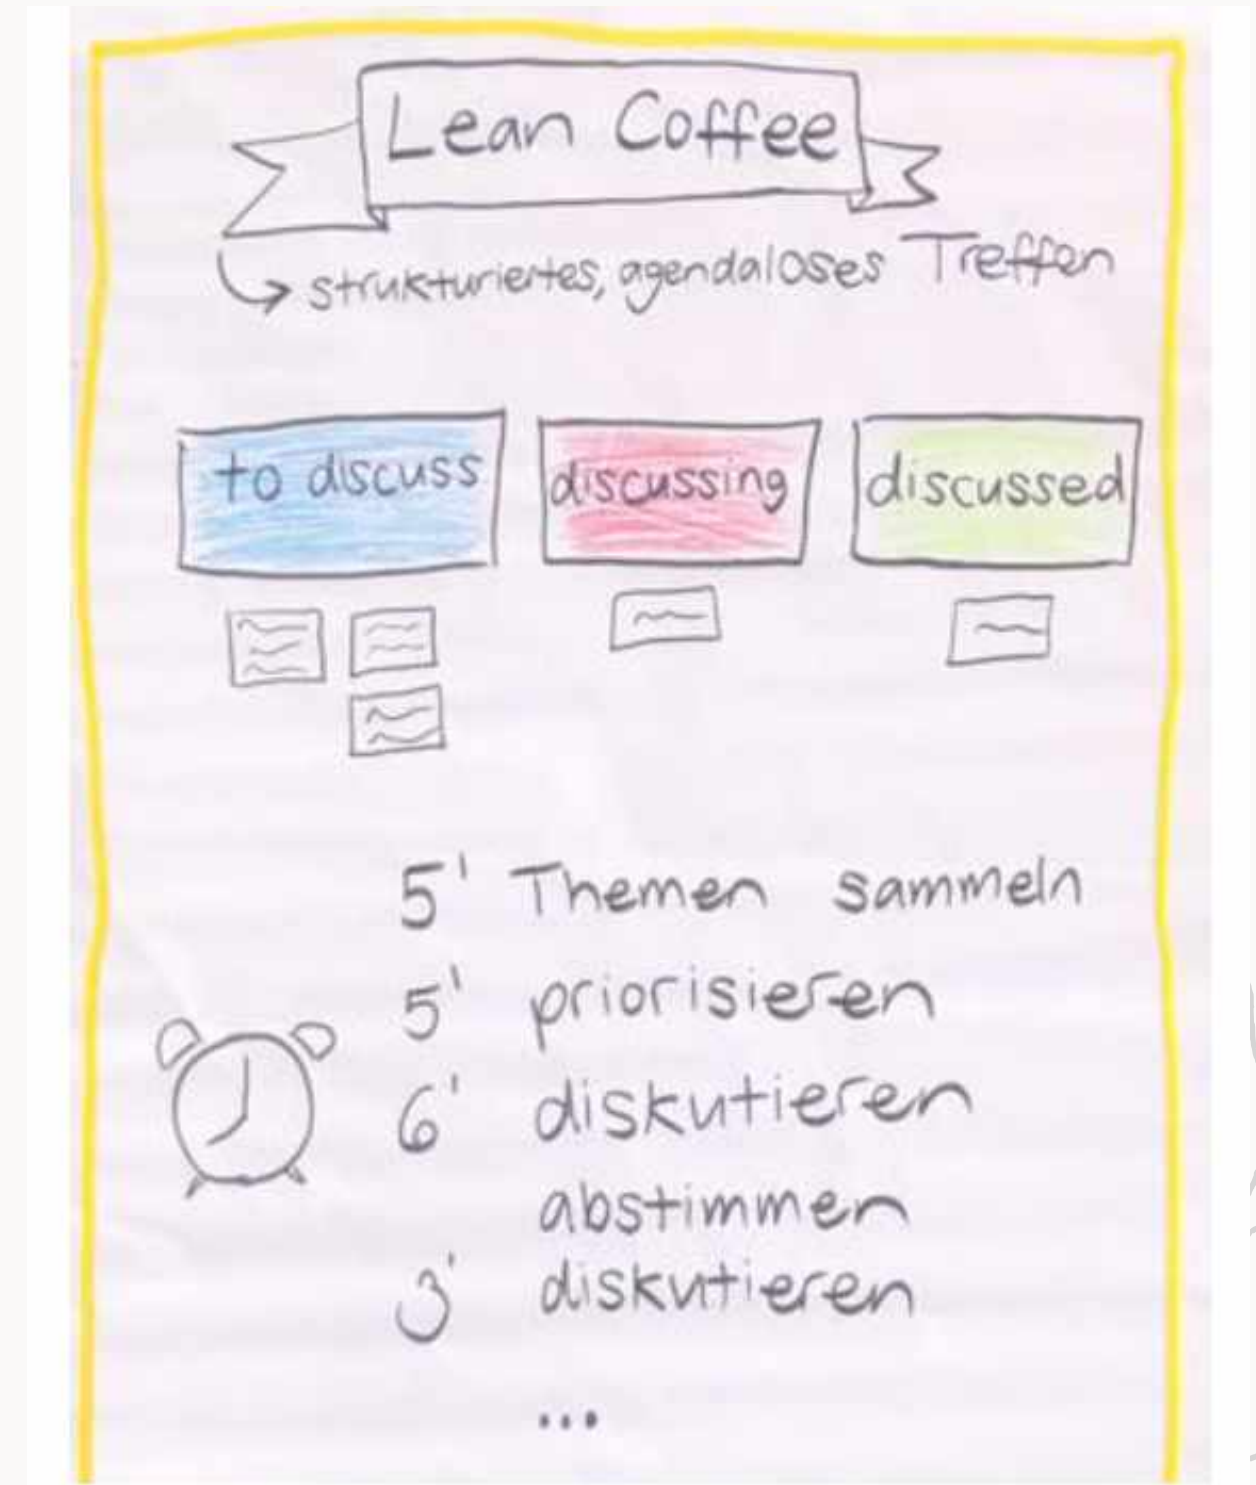 Lean Coffee
strukturiertes, agendaloses Treffen
to discuss
discussing
discussed
5' Themen sammeln
5' priorisieren
6' diskutieren
abstimmen
3' diskutieren
...